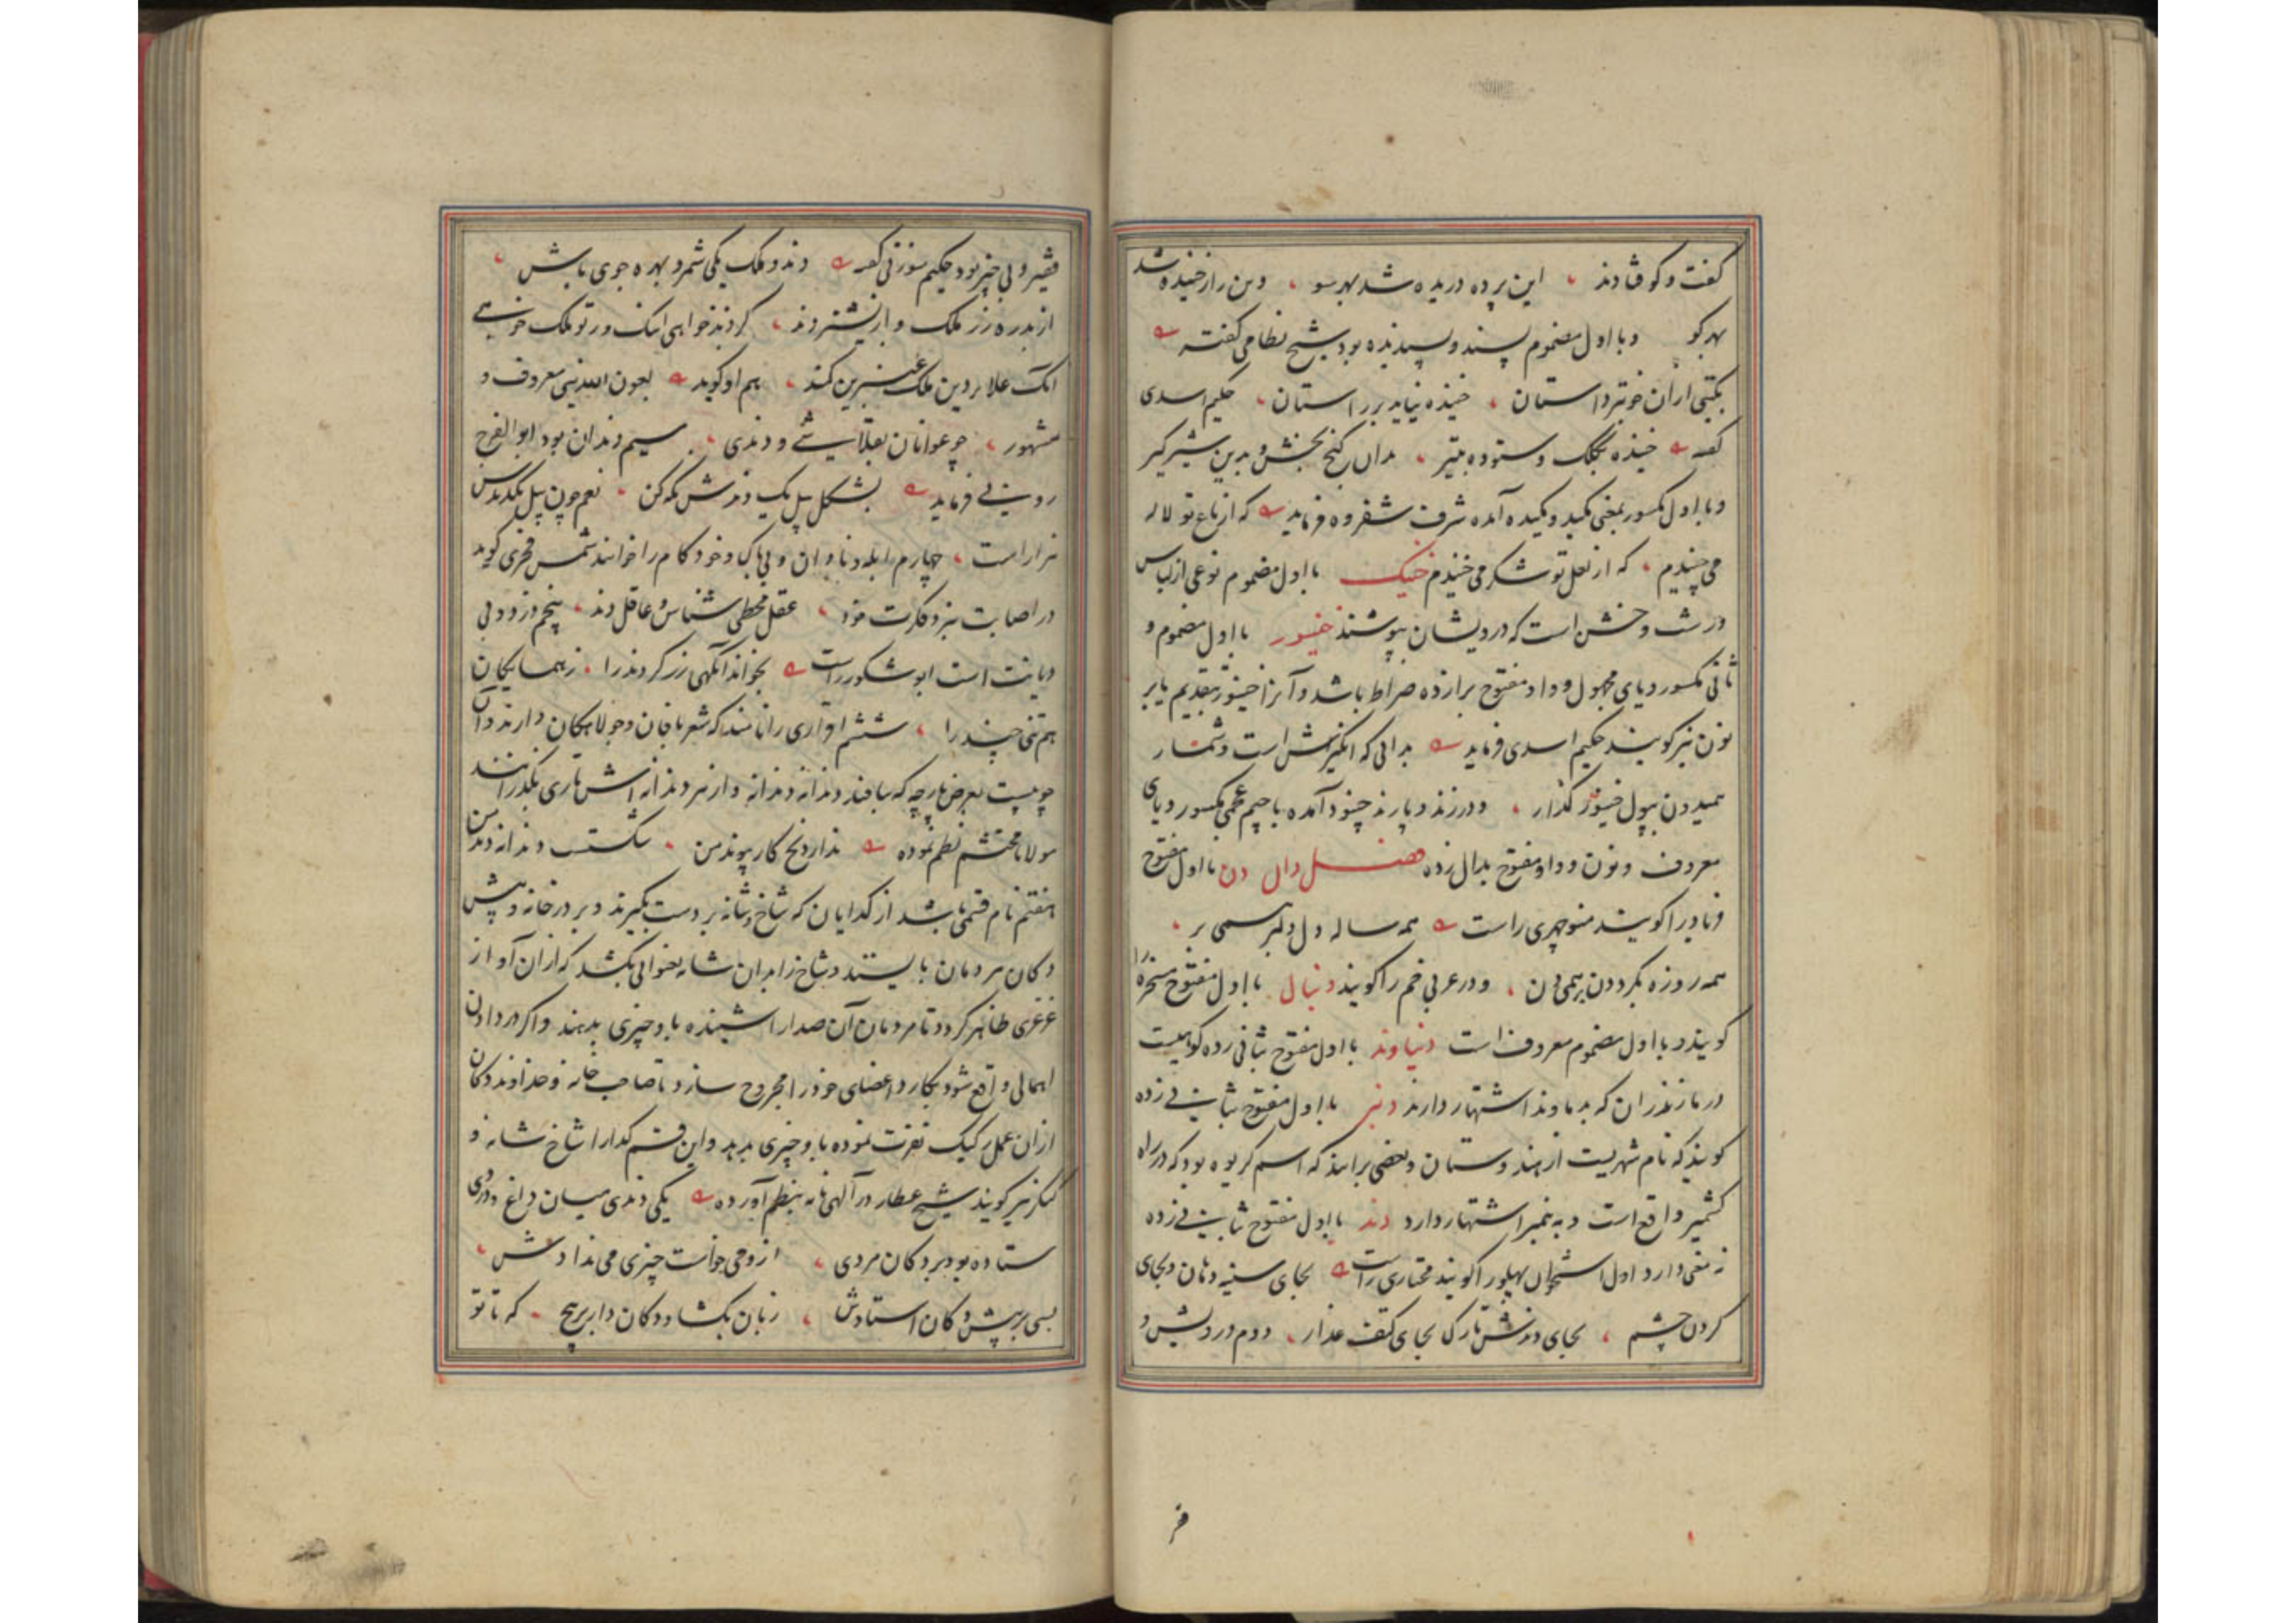 گفت و کو فتادند ، این پرده دریده شد بهر سو ، وین راز خنیده شد
بهر کو وبا اول مضموم پسند و پسندیده بود شیخ نظامی گفته
بگیتی ازان خوبتر داستان ، خنیده نیاید بر راستان ، حکیم اسدی
گفته خنیده بکلک و ستوده بتیر ، بدان گنج بخش و بدین شیر گیر
وبا اول مکسور بمعنی مکید و مکیده آمده شرف شفروه فرماید که از باغ تو لاله
می چنیدم ، که از لعل تو شکر می خنیدم خنیک با اول مضموم نوعی از لباس
درشت و خشن است که درویشان پوشند خنیور با اول مضموم و
ثانی مکسور و یای مجهول و واو مفتوح برا زده صراط باشد و آنرا خینور بتقدیم یا بر
نون نیز گویند حکیم اسدی فرماید بدانی که انگیزش است و شمار
همیدون بپول خنیور گذار ، و در زند و پازند چنود آمده با جیم عجمی مکسور و یای
معروف و نون و واو مفتوح بدال زده فصل دال دن با اول مفتوح
فریاد را گویند منوچهری راست همه ساله دل دلبر همی بر ،
همه روزه بگرد دن همی دن ، و در عربی خم را گویند دنبال با اول مفتوح مسخره را
گویند و با اول مضموم معروف است دنباوند با اول مفتوح بثانی زده کوهیست
در مازندران که بدماوند اشتهار دارند دنبر با اول مفتوح بثانی زده
گویند که نام شهریست از هندوستان و بعضی برانند که اسم کریوه بود که در راه
کشمیر واقع است و به بنمبر اشتهار دارد دند با اول مفتوح بثانی زده
نه معنی دارد اول استخوان پهلو را گویند مختاری راست بجای سینه دهان و بجای
گردن چشم ، بجای دندش تارک بجای کتف عذار ، دوم درویش و
فر
فقیر و بی چیز بود حکیم سوزنی گفته دند و ملک یکی شمرد بهره جوی باش ،
از بدره زر ملک و از پشیز دند ، کردند خواهی انک ور تو ملک خوهی
انک علاء دین ملک کند ، هم او گوید بعون الله نیی معروف و
مشهور ، چو عوانان بقلاشی و دندی ، سیم دندان بود ابو الفرج
رونی فرماید بشکل پیل یک دندش نکه کن ، نعم چون پیل یکدندش
هزار است ، چهارم ابله و نادان و بی باک و خودکام را خوانند شمس فخری گوید
در اصابت بنزد فکرت خود ، عقل مخطی شناس و عاقل دند ، پنجم دزد و بی
دیانت است ابو شکور راست بخواند آنگهی زرگر دند را ، ز همسایگان
هم تنی چند را ، ششم افزاری را نامند که شعر بافان و جولاهگان دارند و آن
چوبیست بعرض پارچه که ببافند دندانه دندانه و از هر دندانه اش تاری بگذرانند
مولانا محتشم نظم نموده ندارد نخ کار پوند من ، شکست دندانه دند من
هفتم نام قسمی باشد از کدایان که شاخ و شانه بر دست بگیرند و بر در خانه و پیش
دکان مردمان بایستند و شاخ را بدان شانه بعنوانی بکشد که ازان آواز
غرغری ظاهر گردد تا مردمان آن صدا را شنیده باو چیزی بدهند و اکر در دادن
اهمالی واقع شود بکارد اعضای خود را مجروح سازد تا صاحب خانه و خداوند دکان
ازان عمل رکیک نفرت نموده باو چیزی بدهد و این قسم کدا را شاخ شانه و
کنگر نیز گویند شیخ عطار در آلهی نامه بنظم آورده یکی دندی میان داغ و دردی
ستاده بود بر دکان مردی ، ازو می خواست چیزی می نداد دش ،
بسی بر پیش دکان استادش ، زبان بگشاد دکان دار بر هیچ ، که تا تو